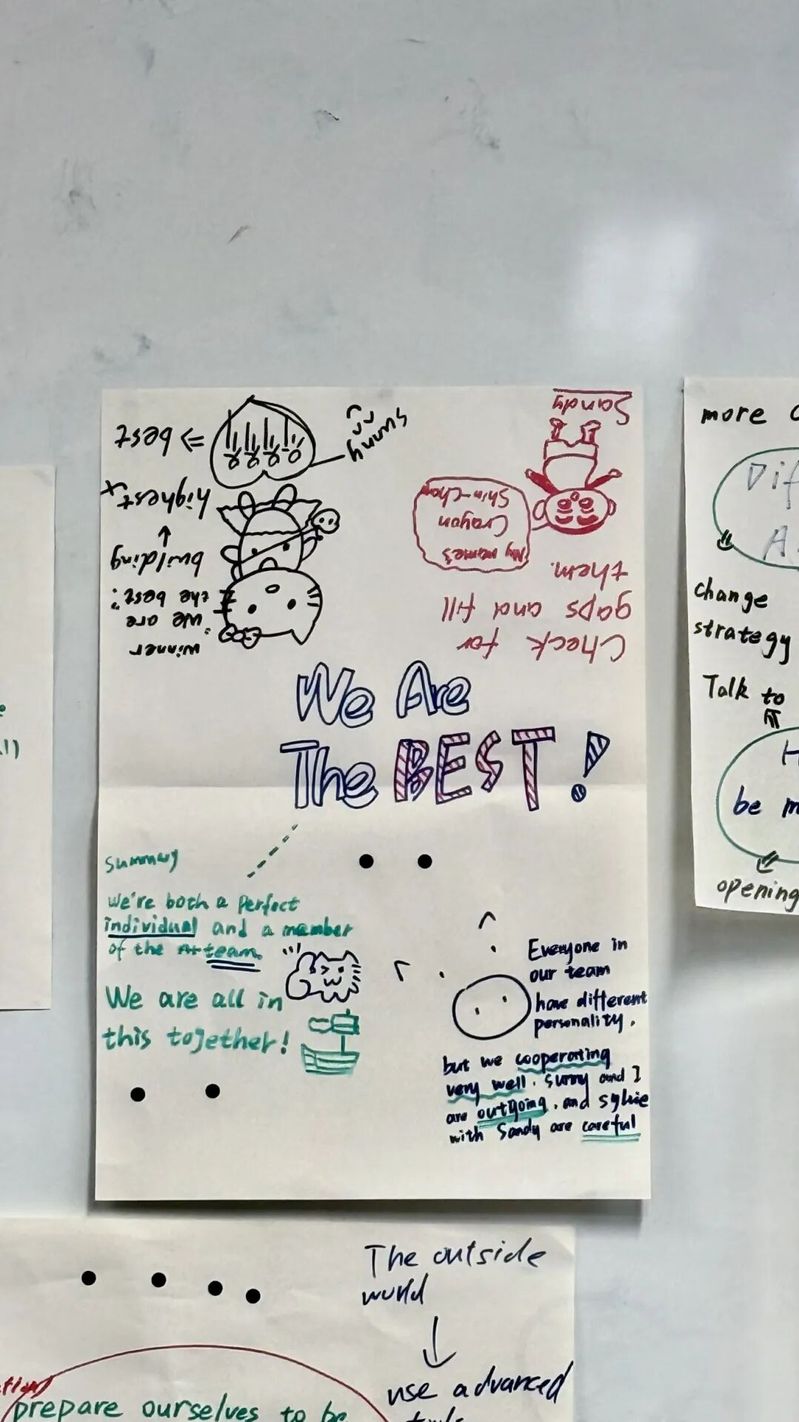 Sandy
My name's
Crayon
Shin-Chan
Check for
gaps and fill
them.
winner
"we are
the best"
building
highest
=> best
sunny
We Are
The BEST!
summary
we're both a perfect
individual and a member
of the team.
We are all in
this together!
Everyone in
our team
have different
personality.
but we cooperating
very well. sunny and I
are outgoing. and sylvie
with Sandy are careful
more
Dif
A
change
strategy
Talk to
H
be m
opening
The outside
world
use advanced
prepare ourselves to be